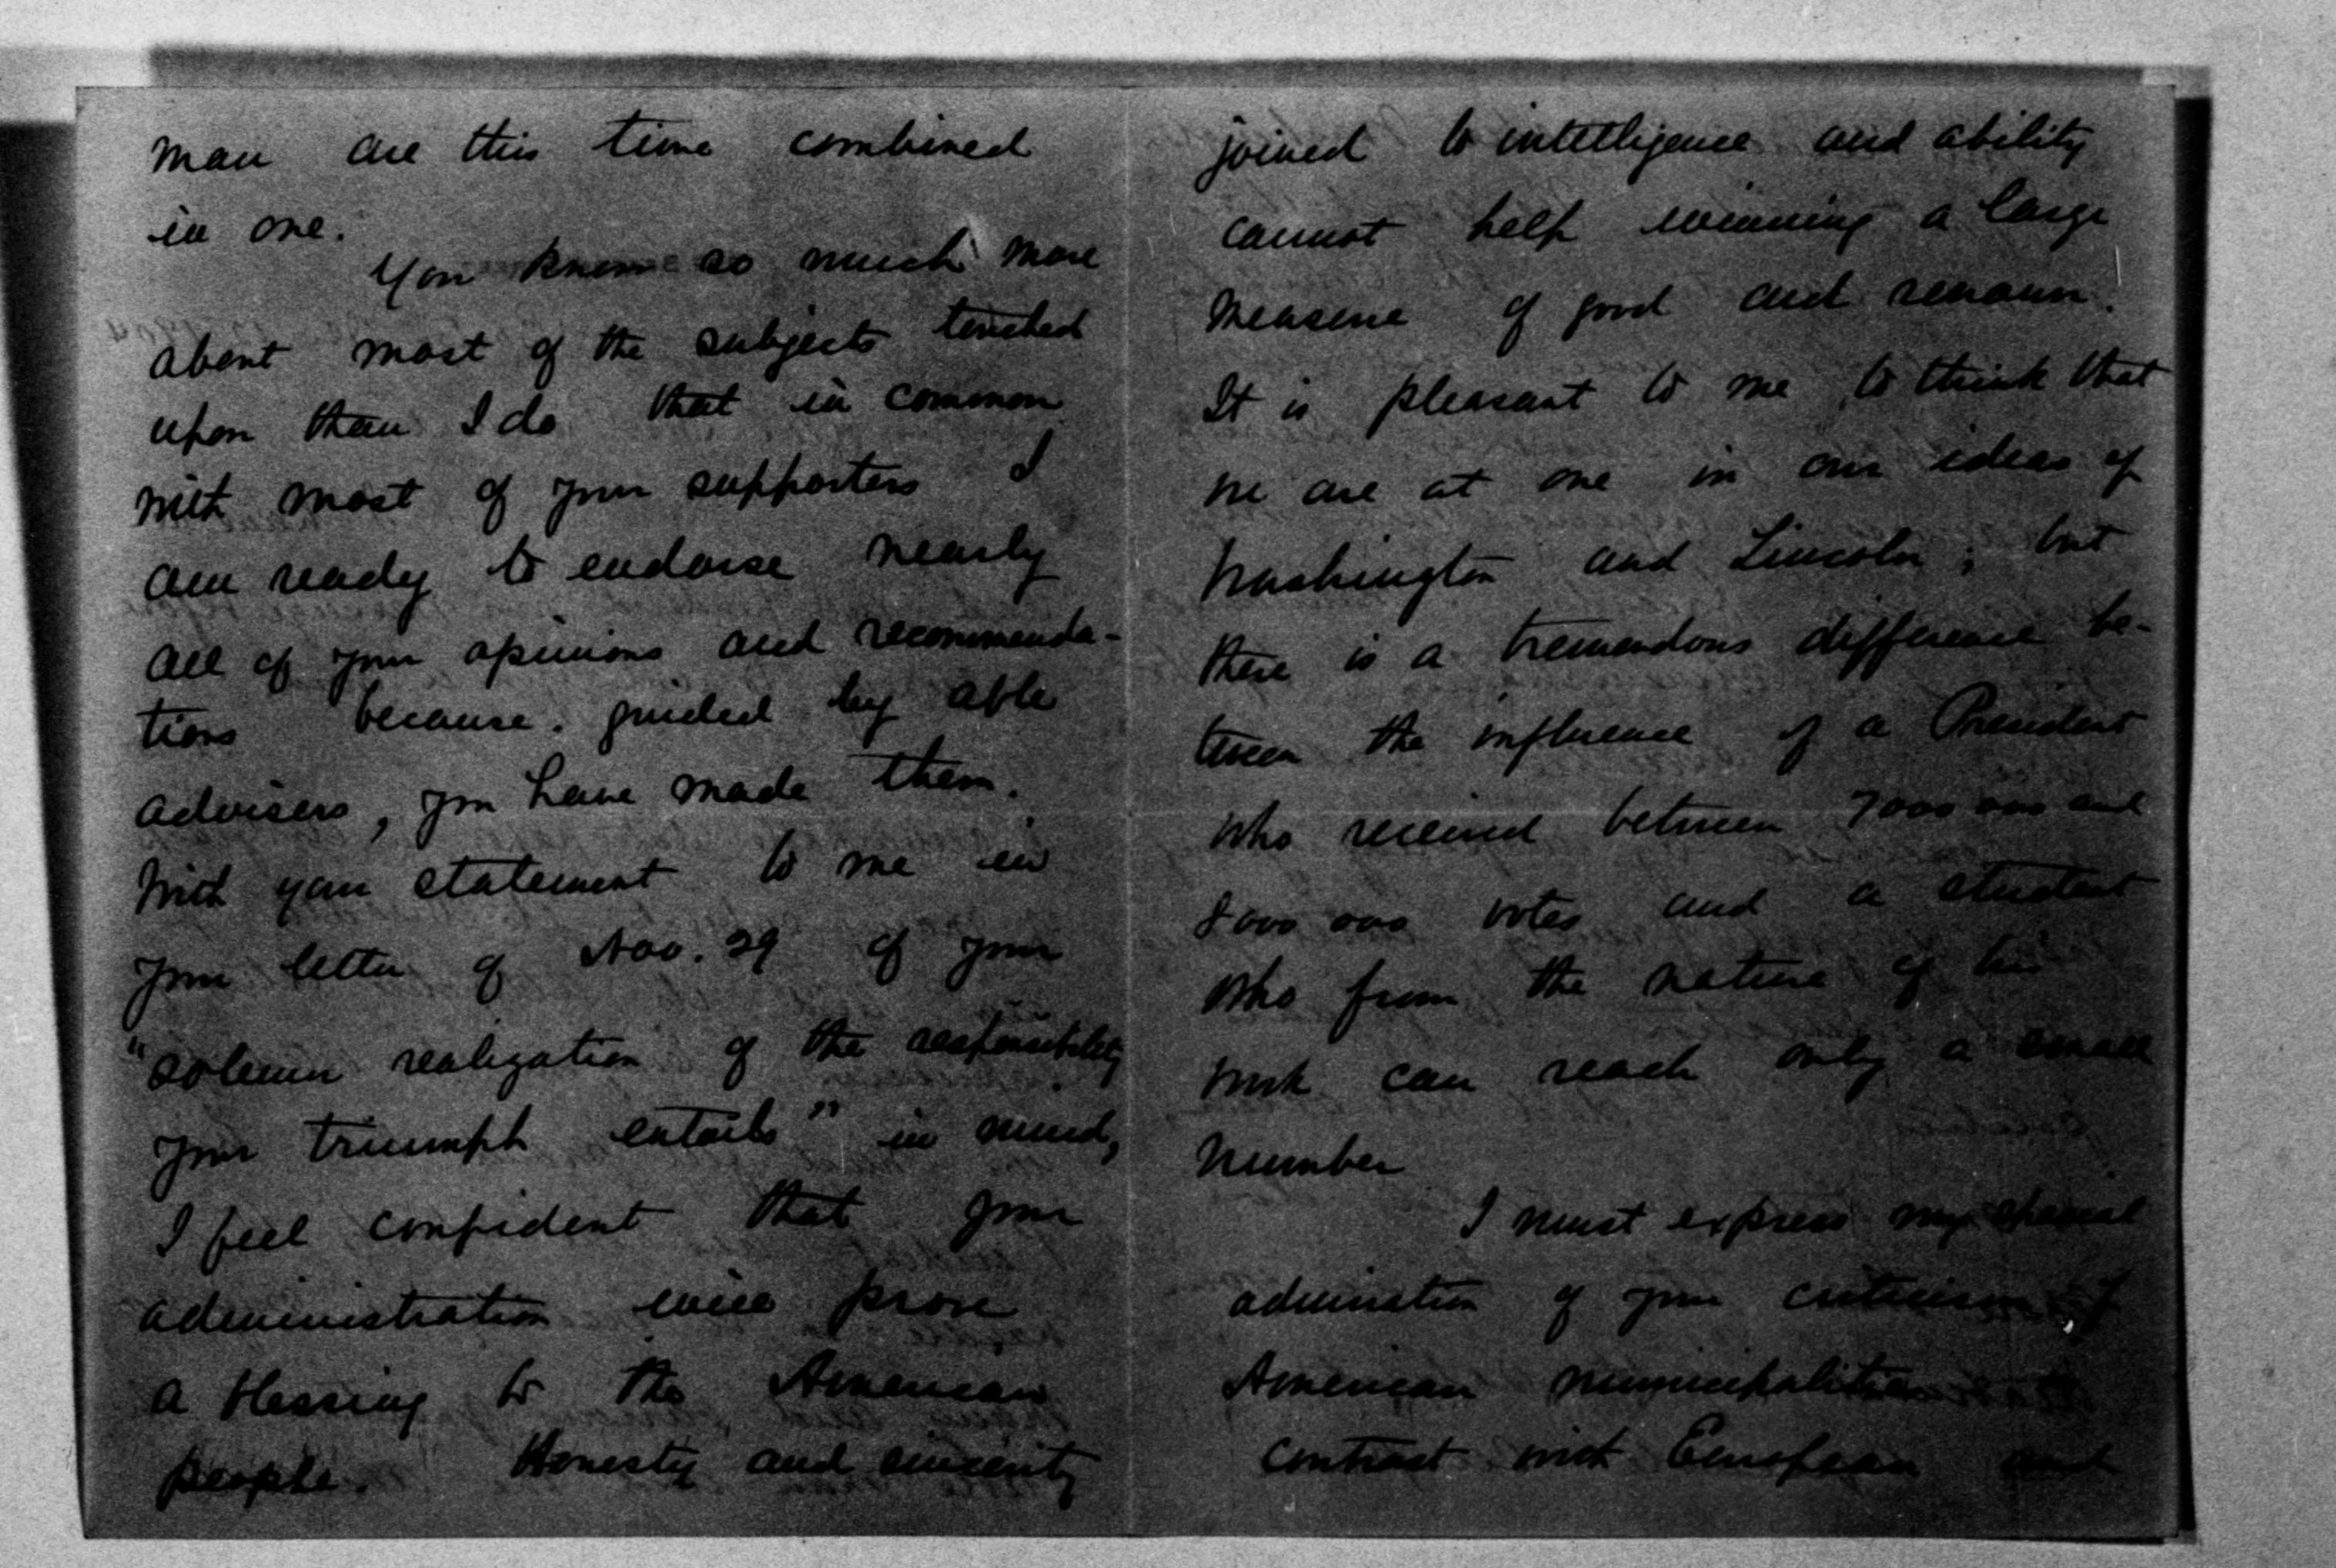 man are this time combined
in one.
You know so much more
about most of the subjects touched
upon than I do that in common
with most of your supporters I
am ready to endorse nearly
all of your opinions and recommenda-
tions because, guided by able
advisers, you have made them.
With your statement to me in
your letter of Nov. 29 of your
"solemn realization of the responsibility
your triumph entails" in mind,
I feel confident that your
administration will prove
a blessing to the American
people. Honesty and sincerity
joined to intelligence and ability
cannot help winning a large
measure of good and renown.
It is pleasant to me to think that
we are at one in our ideas of
Washington and Lincoln; but
there is a tremendous difference be-
tween the influence of a President
who received between 7000 000 and
8000 000 votes and a student
who from the nature of his
work can reach only a small
number
I must express my special
admiration of your criticism of
American municipalities
contrast with European and